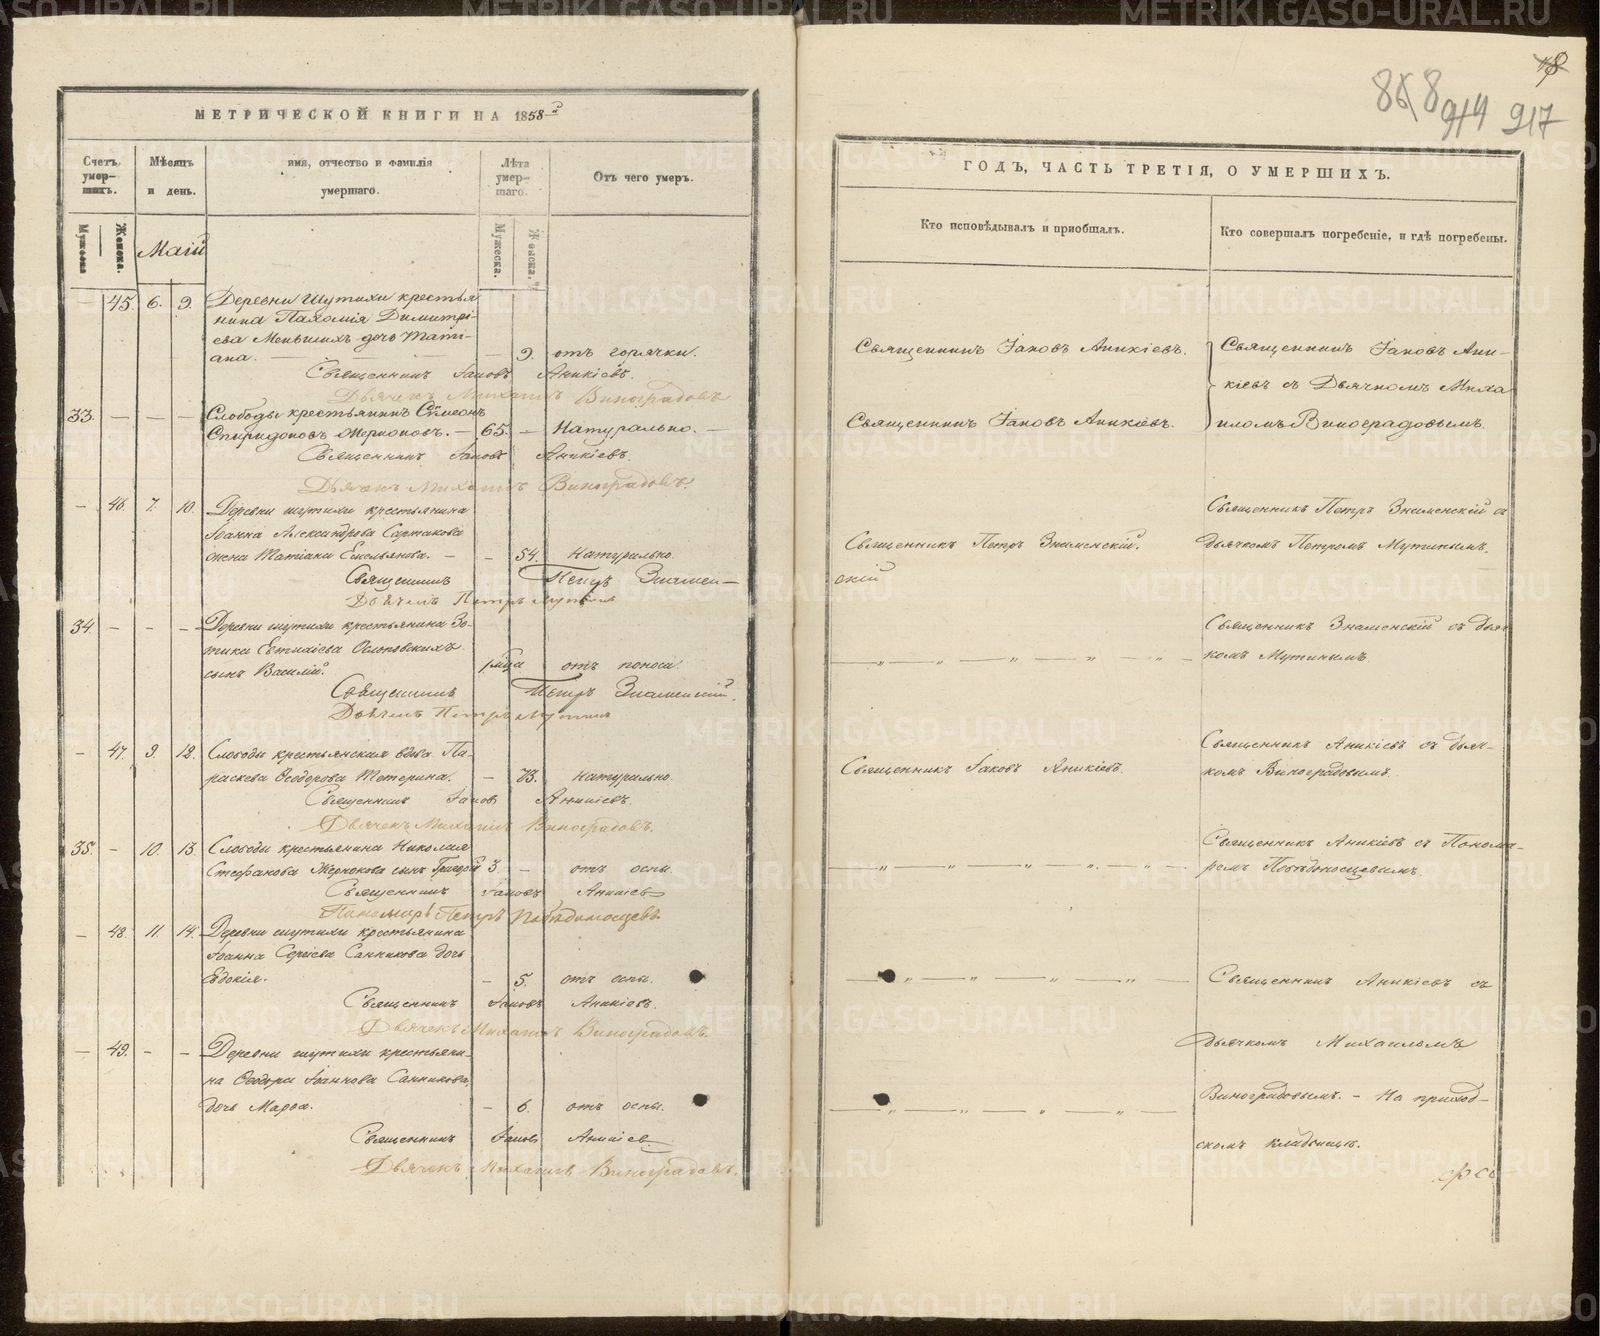 МЕТРИЧЕСКОЙ КНИГИ НА 1858й
Счетъ умер-шихъ.
Мѣсяцъ и день.
имя, отчество и фамилія умершаго.
Лѣта умер-шаго.
Отъ чего умеръ.
Мужеска
Женска.
Маій
Мужеска.
Женска.
— 45. 6. 9. Деревни Шутихи крестья
нина Пахомія Димитрі-
ева Меньшихъ дочь Таті-
ана. — 9. отъ горячки.
Священникъ Іаковъ Аникіевъ.
Дьячекъ Михаилъ Виноградовъ
33. — — — Слободы крестьянинъ Сѵмеонъ
Спиридоновъ Жерноковъ. — 65. — Натурально. —
Священникъ Іаковъ Аникіевъ.
Дьячекъ Михаилъ Виноградовъ.
— 46. 7. 10. Деревни шутихи крестьянина
Іоанна Александрова Сартакова
жена Татіана Емельянова. — — 54. Натурально
Священникъ Петръ Знамен—
скій
Дьячекъ Петръ Мутинъ
34. — — — Деревни шутихи крестьянина Зо-
тика Евтихіева Ослоповскихъ
сынъ Василій. 1 мѣца отъ поноса.
Священникъ Петръ Знаменскій.
Дьячекъ Петръ Мутинъ
— 47. 9. 12. Слободы крестьянская вдова Па-
раскева Ѳеодорова Тетерина. — 73. натурально.
Священникъ Іаковъ Аникіевъ.
Дьячекъ Михаилъ Виноградовъ.
35. — 10. 13. Слободы крестьянина Николая
Стефанова Жернокова сынъ Григорій 3 — отъ оспы.
Священникъ Іаковъ Аникіевъ
Пономарь Петръ Побѣдоносцевъ
— 48. 11. 14. Деревни шутихи крестьянина
Іоанна Сергіева Санникова дочь
Евдокія. — 5. отъ оспы.
Священникъ Іаковъ Аникіевъ.
Дьячекъ Михаилъ Виноградовъ.
— 49. — — Деревни шутихи крестьяни-
на Ѳеодора Іоаннова Санникова,
дочь Марѳа. — 6. отъ оспы.
Священникъ Іаковъ Аникіев
Дьячекъ Михаилъ Виноградовъ.
868 914 917
ГОДЪ, ЧАСТЬ ТРЕТІЯ, О УМЕРШИХЪ.
Кто исповѣдывалъ и пріобщалъ.
Кто совершалъ погребеніе, и гдѣ погребены.
Священникъ Іаковъ Аникіевъ.
Священникъ Іаковъ Ани-
кіевъ съ Дьячкомъ Миха
иломъ Виноградовымъ.
Священникъ Іаковъ Аникіевъ.
Священникъ Петръ Знаменскій съ
дьячкомъ Петромъ Мутинымъ.
Священникъ Петръ Знаменскій.
Священникъ Знаменскій съ дьяч
комъ Мутинымъ
— „ — „ — „ — „ —
Священникъ Аникіевъ съ дьяч-
комъ Виноградовымъ.
Священникъ Іаковъ Аникіевъ.
Священникъ Аникіевъ съ Понома-
ремъ Побѣдоносцевымъ.
— „ — „ — „ — „ —
— „ — „ — „ — „ —
Священникъ Аникіевъ съ
дьячкомъ Михаиломъ
Виноградовымъ. — На приход-
скомъ кладбищѣ.
— „ — „ — „ — „ —
METRIKI.GASO-URAL.RU